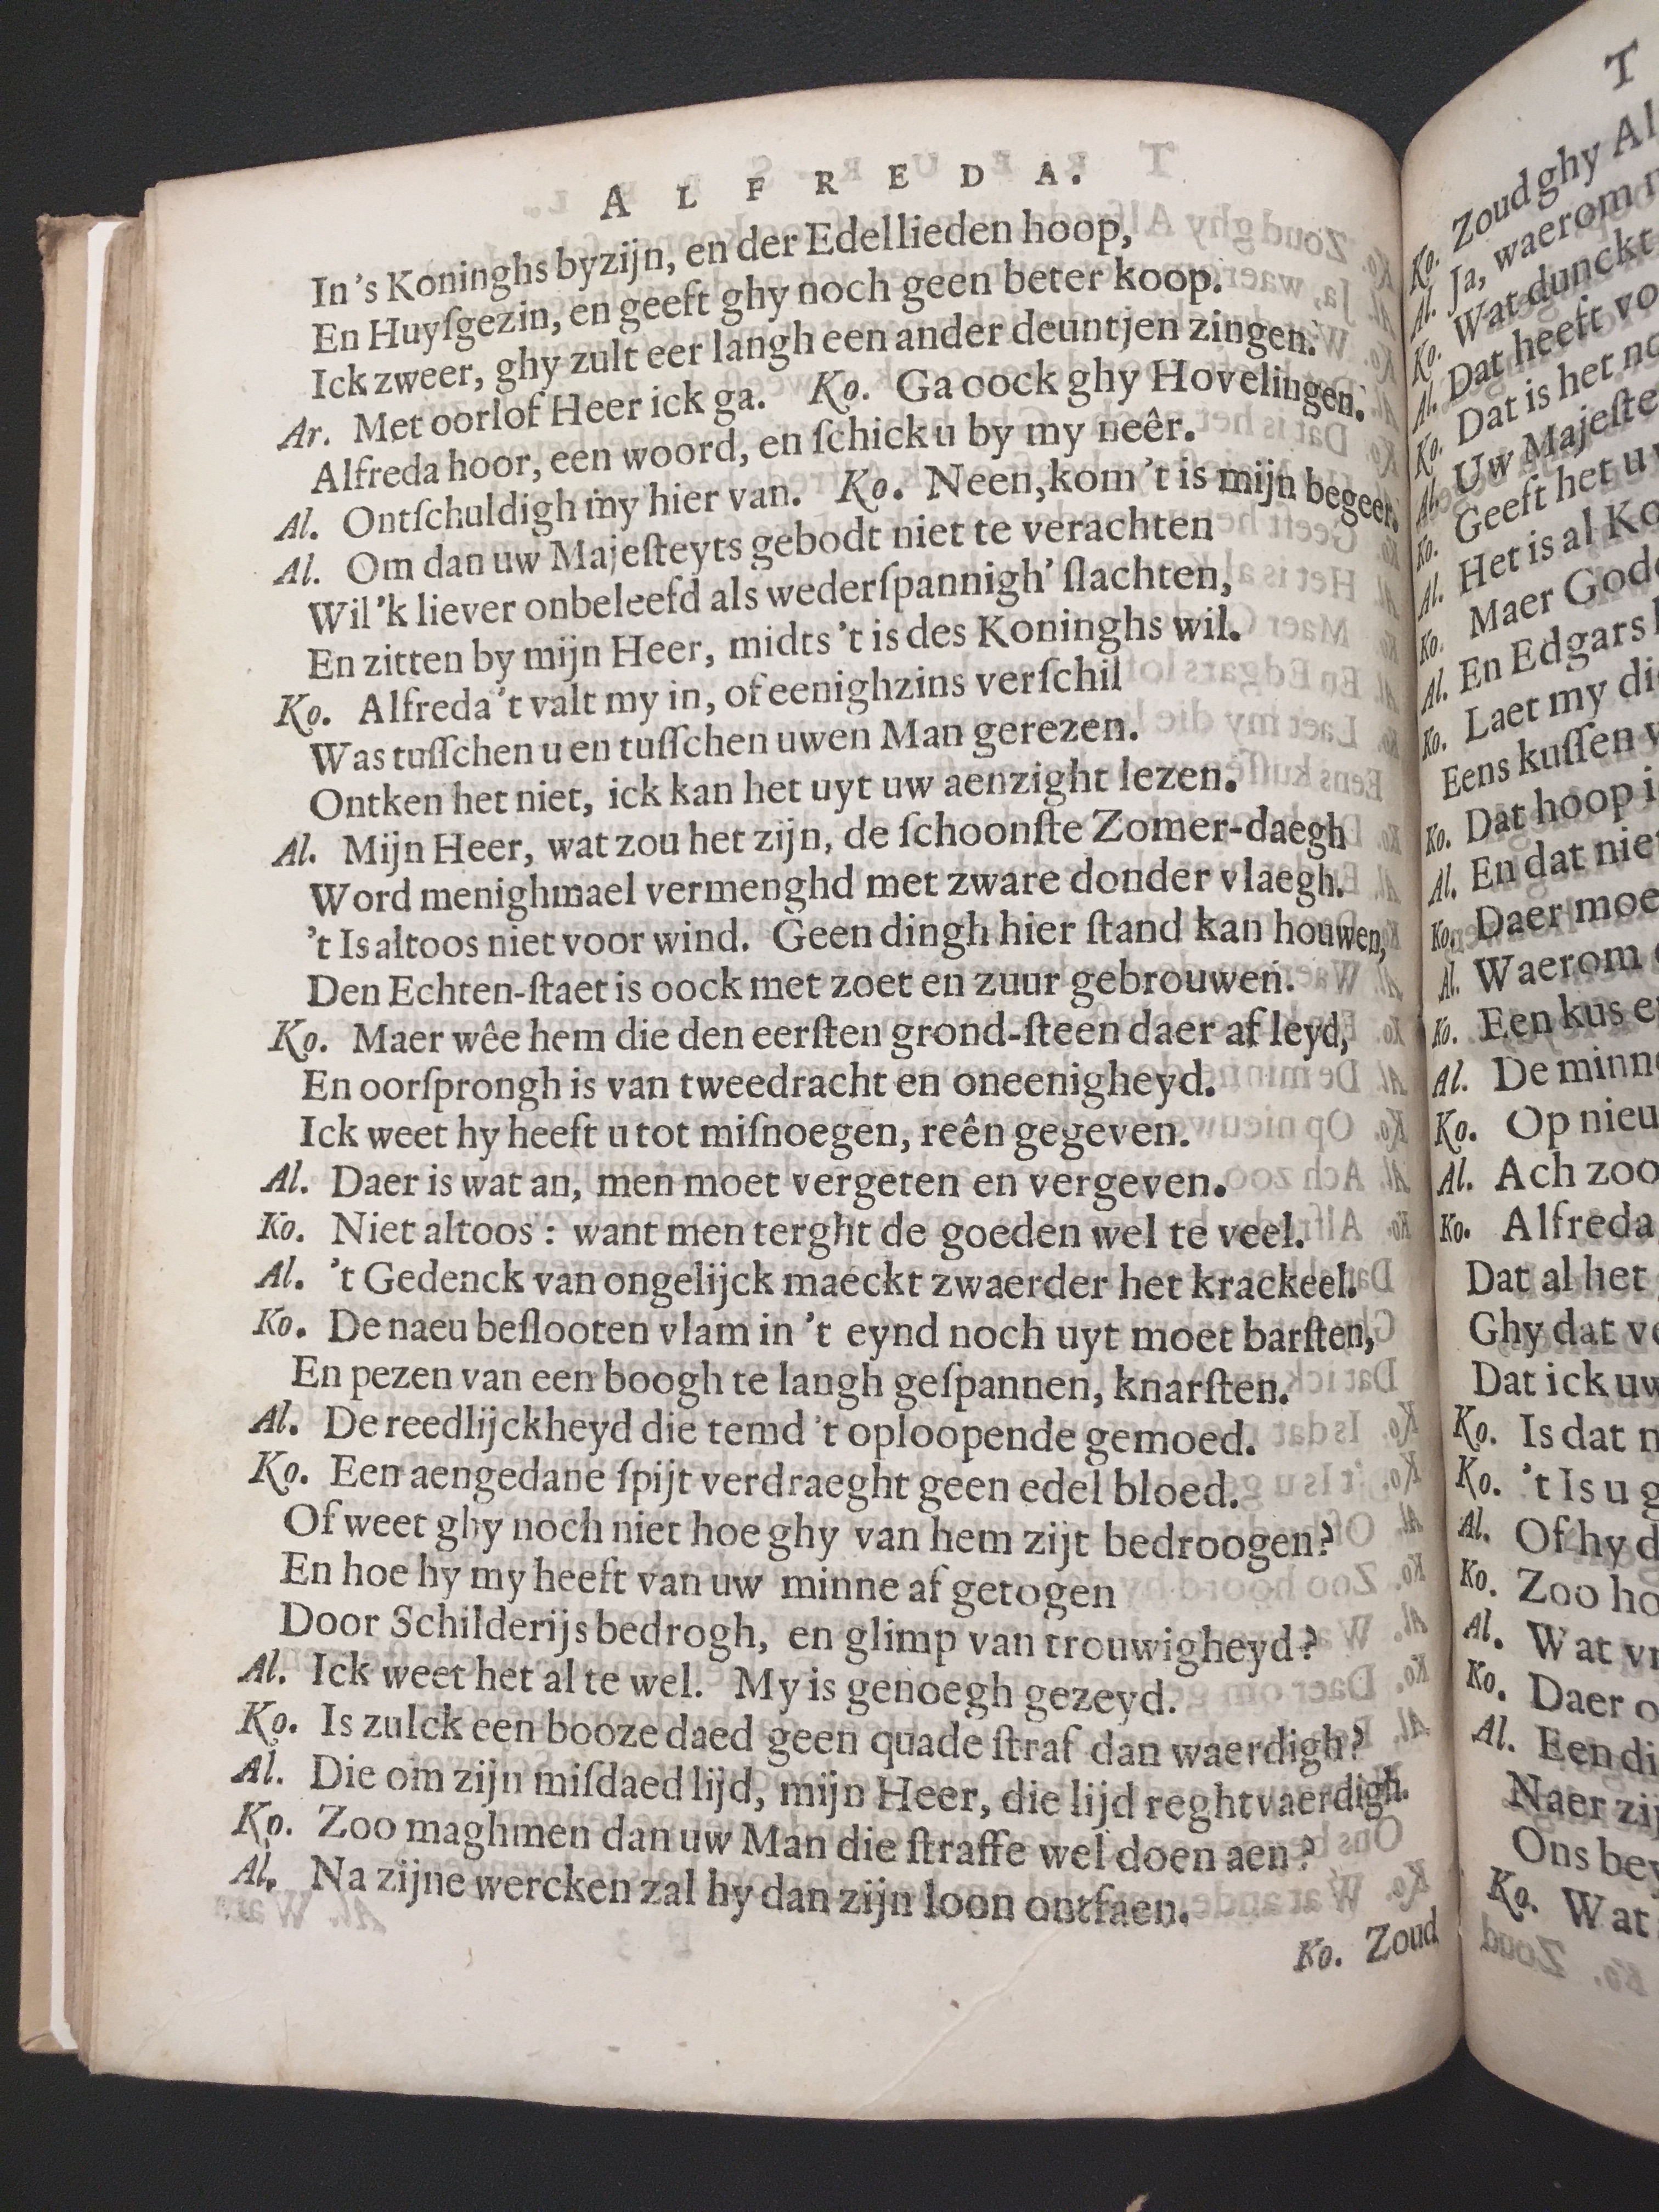 ALFREDA.
In 's Koninghs byzijn, en der Edellieden hoop,
En Huyſgezin, en geeft ghy noch geen beter koop.
Ick zweer, ghy zult eer langh een ander deuntjen zingen.
Ar. Met oorlof Heer ick ga. Ko. Ga oock ghy Hovelingen.
Alfreda hoor, een woord, en ſchick u by my neêr.
Al. Ontſchuldigh my hier van. Ko. Neen, kom 't is mijn begeer.
Al. Om dan uw Majeſteyts gebodt niet te verachten
Wil 'k liever onbeleefd als wederſpannigh' ſlachten,
En zitten by mijn Heer, midts 't is des Koninghs wil.
Ko. Alfreda 't valt my in, of eenighzins verſchil
Was tuſſchen u en tuſſchen uwen Man gerezen.
Ontken het niet, ick kan het uyt uw aenzight lezen.
Al. Mijn Heer, wat zou het zijn, de ſchoonſte Zomer-daegh
Word menighmael vermenghd met zware donder vlaegh.
't Is altoos niet voor wind. Geen dingh hier ſtand kan houwen,
Den Echten-ſtaet is oock met zoet en zuur gebrouwen.
Ko. Maer wêe hem die den eerſten grond-ſteen daer af leyd,
En oorſprongh is van tweedracht en oneenigheyd.
Ick weet hy heeft u tot miſnoegen, reên gegeven.
Al. Daer is wat an, men moet vergeten en vergeven.
Ko. Niet altoos: want men terght de goeden wel te veel.
Al. 't Gedenck van ongelijck maeckt zwaerder het krackeel.
Ko. De naeu beſlooten vlam in 't eynd noch uyt moet barſten,
En pezen van een boogh te langh geſpannen, knarſten.
Al. De reedlijckheyd die temd 't oploopende gemoed.
Ko. Een aengedane ſpijt verdraeght geen edel bloed.
Of weet ghy noch niet hoe ghy van hem zijt bedroogen?
En hoe hy my heeft van uw minne af getogen
Door Schilderijs bedrogh, en glimp van trouwigheyd?
Al. Ick weet het al te wel. My is genoegh gezeyd.
Ko. Is zulck een booze daed geen quade ſtraf dan waerdigh?
Al. Die om zijn miſdaed lijd, mijn Heer, die lijd reghtvaerdigh.
Ko. Zoo magh men dan uw Man die ſtraffe wel doen aen?
Al. Na zijne wercken zal hy dan zijn loon ontfaen.
Ko. Zoud
T
Ko. Zoud ghy Al
Al. Ja, waerom
Ko. Wat dunckt
Al. Dat heeft vo
Ko. Dat is het no
Al. Uw Majeſte
Ko. Geeft het u
Al. Het is al Ko
Ko. Maer Gode
Al. En Edgars
Ko. Laet my di
Eens kuſſen
Ko. Dat hoop i
Al. En dat nie
Ko. Daer moe
Al. Waerom
Ko. Een kus e
Al. De minn
Ko. Op nieu
Al. Ach zoo
Ko. Alfreda
Dat al het
Ghy dat v
Dat ick uw
Ko. Is dat
Ko. 't Is u g
Al. Of hy d
Ko. Zoo ho
Al. Wat v
Ko. Daer o
Al. Een di
Naer zij
Ons bey
Ko. Wat